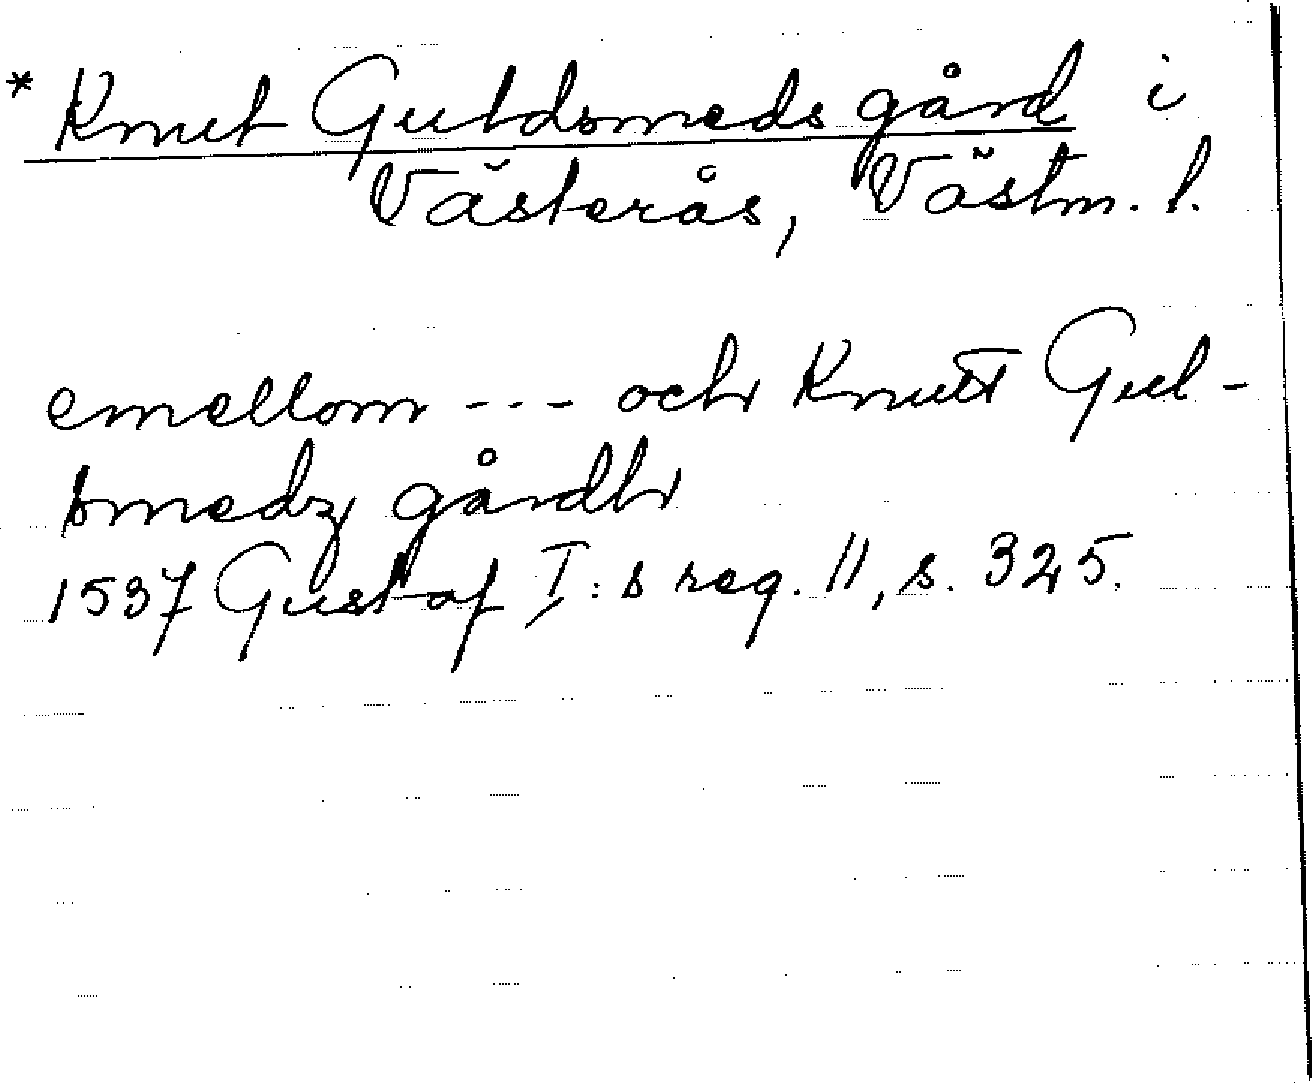 * Knut Guldsmeds gård i
Västerås, Västm. l.
emellom --- och Knutt Gul-
smedz gårdh
1537 Gustaf I:s reg. 11, s. 325.